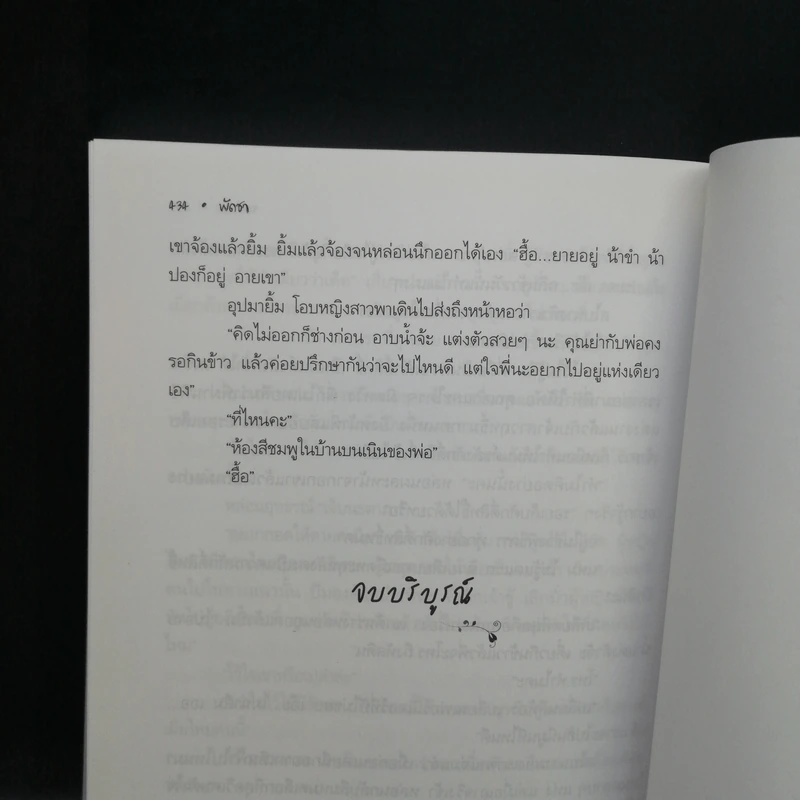 434 • พัดชา
เขาจ้องแล้วยิ้ม ยิ้มแล้วจ้องจนหล่อนนึกออกได้เอง “ฮื้อ...ยายอยู่ น้าขำ น้า
ปองก็อยู่ อายเขา”
อุปมายิ้ม โอบหญิงสาวพาเดินไปส่งถึงหน้าหอว่า
“คิดไม่ออกก็ช่างก่อน อาบน้ำจ้ะ แต่งตัวสวยๆ นะ คุณย่ากับพ่อคง
รอกินข้าว แล้วค่อยปรึกษากันว่าจะไปไหนดี แต่ใจพี่นะอยากไปอยู่แห่งเดียว
เอง”
“ที่ไหนคะ”
“ห้องสีชมพูในบ้านบนเนินของพ่อ”
“ฮื้อ”
จบบริบูรณ์